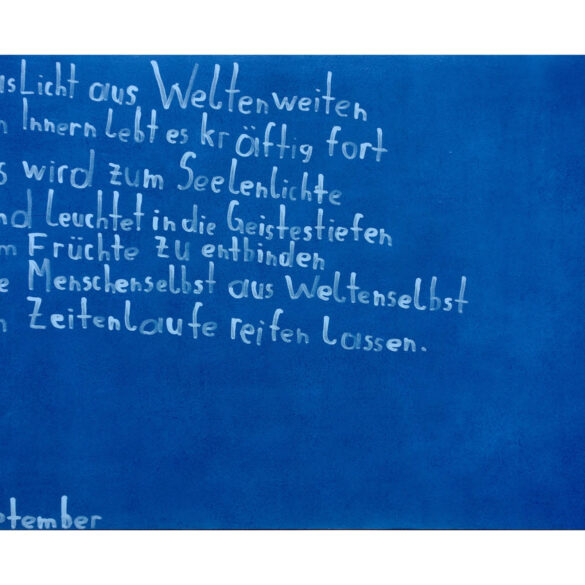 asLicht aus Weltenweiten
n Innern Lebt es kräftig fort
s wird zum Seelenlichte
nd Leuchtet in die Geistestiefen
m Früchte zu entbinden
e Menschenselbst aus Weltenselbst
n Zeitenlaufe reifen Lassen.
ptember